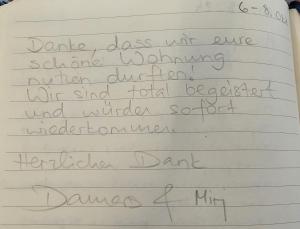 6-8.
Danke, dass wir eure
schöne Wohnung
nutzen durften!
Wir sind total begeistert
und würden sofort
wiederkommen.
Herzlichen Dank
&